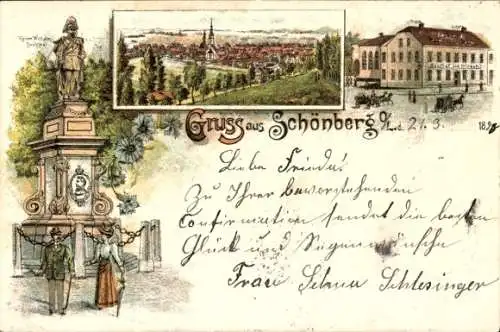 Kaiser Wilhelm
Denkmal
Gruss aus Schönberg O/
d. 21. 3. 189
Liebe Frieda!
Zu Ihrer bevorstehenden
Confirmation sendet die besten
Glück und Segenwünsche
Frau Selma Schlesinger